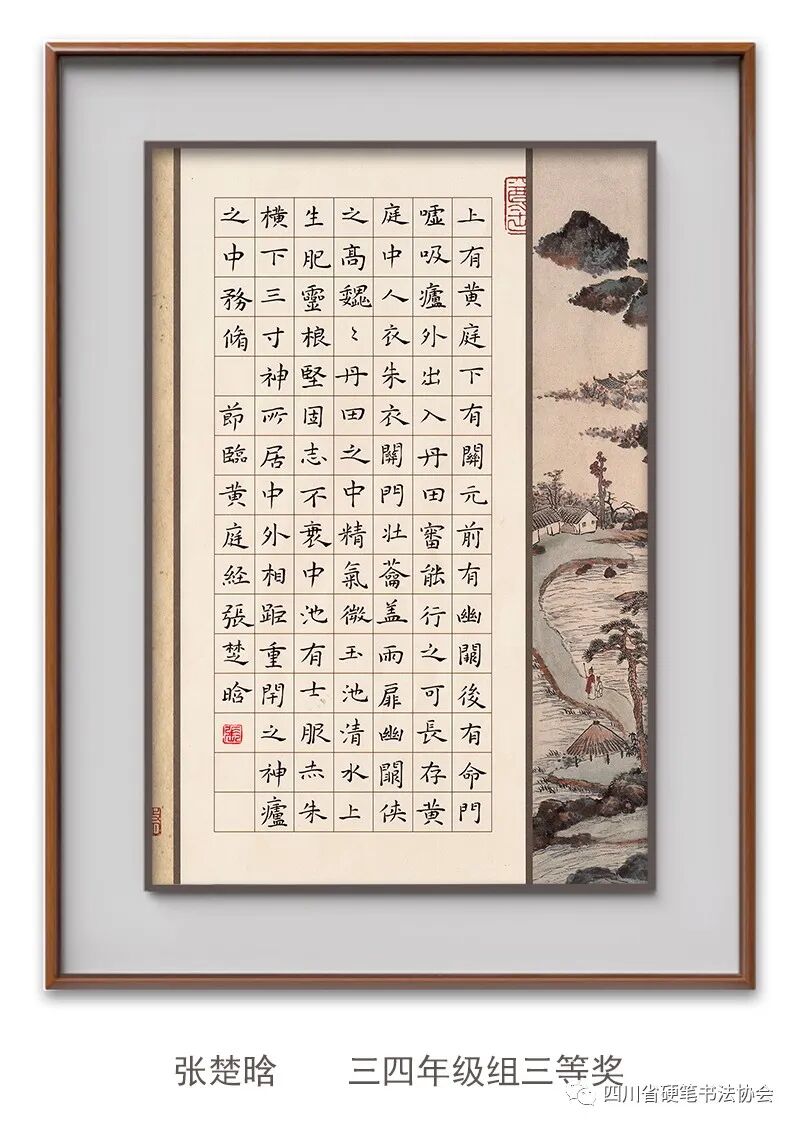 上有黄庭下有關元前有幽闕後有命門
嘘吸廬外出入丹田審能行之可長存黄
庭中人衣朱衣關門壮蘥盖兩扉幽闕俠
之髙巍〻丹田之中精氣微玉池清水上
生肥靈根堅固志不衰中池有士服赤朱
横下三寸神所居中外相距重閇之神廬
之中務脩 節臨黄庭経張楚晗
张楚晗 三四年级组三等奖
四川省硬笔书法协会